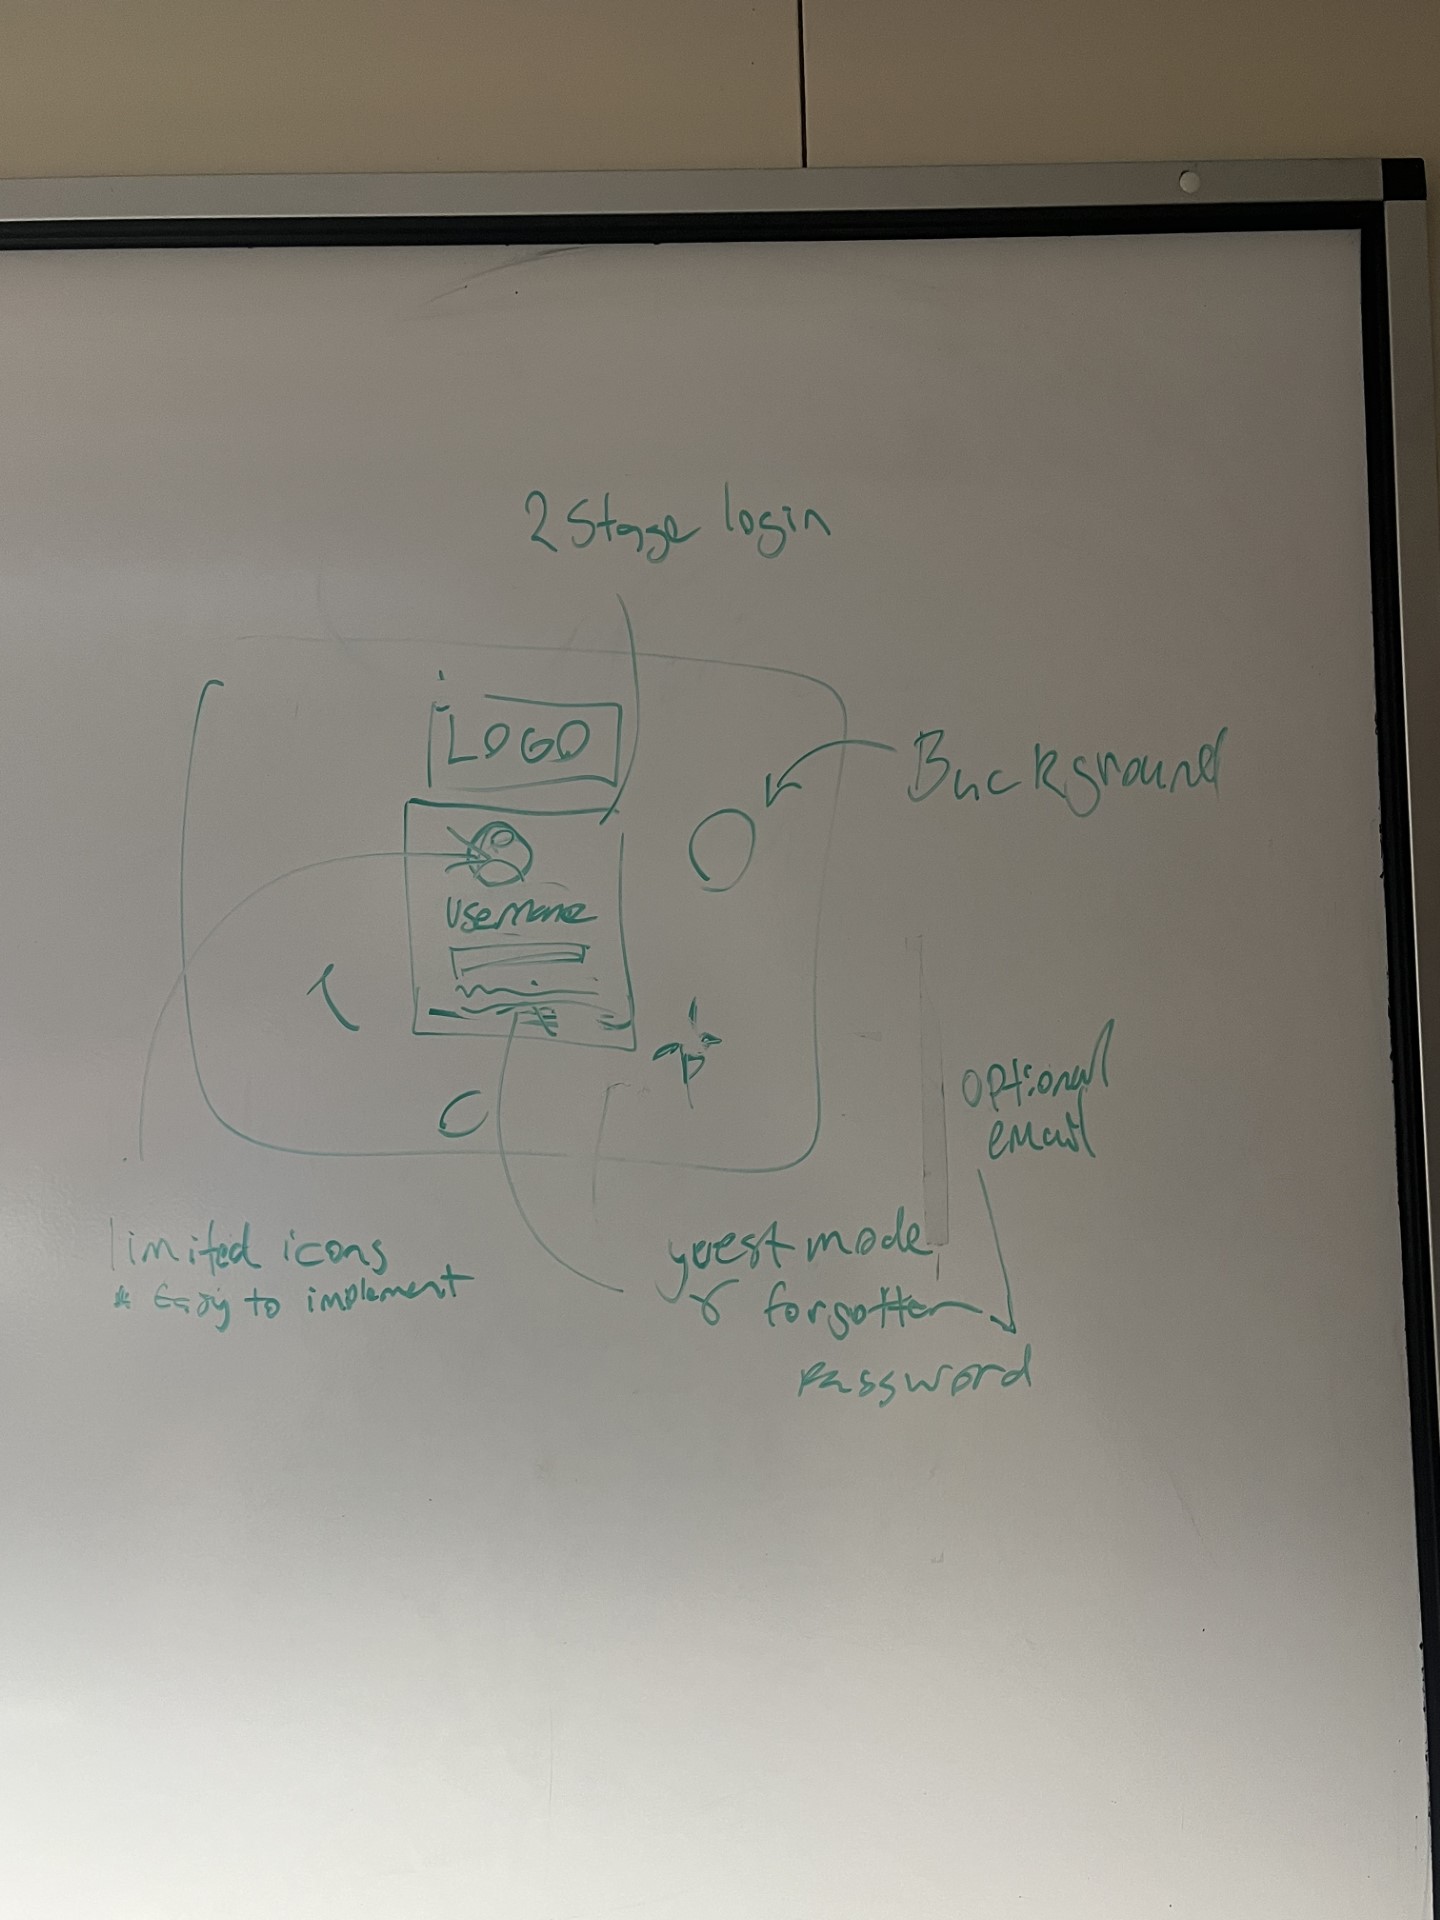 2 Stage login
LOGO
Background
Username
optional
email
limited icons
* Easy to implement
guest mode
& forgotten
password